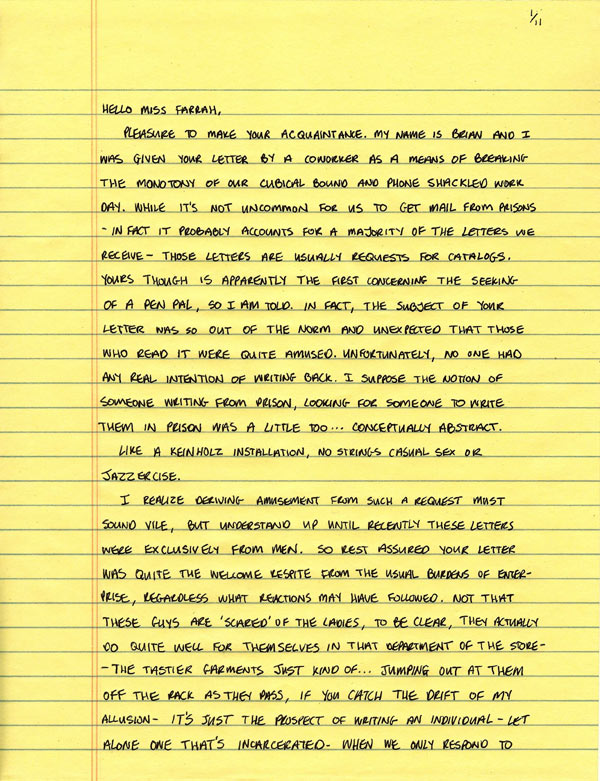 1/11
HELLO MISS FARRAH,
PLEASURE TO MAKE YOUR ACQUAINTANCE. MY NAME IS BRIAN AND I
WAS GIVEN YOUR LETTER BY A COWORKER AS A MEANS OF BREAKING
THE MONOTONY OF OUR CUBICAL BOUND AND PHONE SHACKLED WORK
DAY. WHILE IT'S NOT UNCOMMON FOR US TO GET MAIL FROM PRISONS
- IN FACT IT PROBABLY ACCOUNTS FOR A MAJORITY OF THE LETTERS WE
RECEIVE - THOSE LETTERS ARE USUALLY REQUESTS FOR CATALOGS.
YOURS THOUGH IS APPARENTLY THE FIRST CONCERNING THE SEEKING
OF A PEN PAL, SO I AM TOLD. IN FACT, THE SUBJECT OF YOUR
LETTER WAS SO OUT OF THE NORM AND UNEXPECTED THAT THOSE
WHO READ IT WERE QUITE AMUSED. UNFORTUNATELY, NO ONE HAD
ANY REAL INTENTION OF WRITING BACK. I SUPPOSE THE NOTION OF
SOMEONE WRITING FROM PRISON, LOOKING FOR SOMEONE TO WRITE
THEM IN PRISON WAS A LITTLE TOO... CONCEPTUALLY ABSTRACT.
LIKE A KEINHOLZ INSTALLATION, NO STRINGS CASUAL SEX OR
JAZZERCISE.
I REALIZE DERIVING AMUSEMENT FROM SUCH A REQUEST MUST
SOUND VILE, BUT UNDERSTAND UP UNTIL RECENTLY THESE LETTERS
WERE EXCLUSIVELY FROM MEN. SO REST ASSURED YOUR LETTER
WAS QUITE THE WELCOME RESPITE FROM THE USUAL BURDENS OF ENTER-
PRISE, REGARDLESS WHAT REACTIONS MAY HAVE FOLLOWED. NOT THAT
THESE GUYS ARE 'SCARED' OF THE LADIES, TO BE CLEAR, THEY ACTUALLY
DO QUITE WELL FOR THEMSELVES IN THAT DEPARTMENT OF THE STORE-
- THE TASTIER GARMENTS JUST KIND OF... JUMPING OUT AT THEM
OFF THE RACK AS THEY PASS, IF YOU CATCH THE DRIFT OF MY
ALLUSION - IT'S JUST THE PROSPECT OF WRITING AN INDIVIDUAL - LET
ALONE ONE THAT'S INCARCERATED - WHEN WE ONLY RESPOND TO